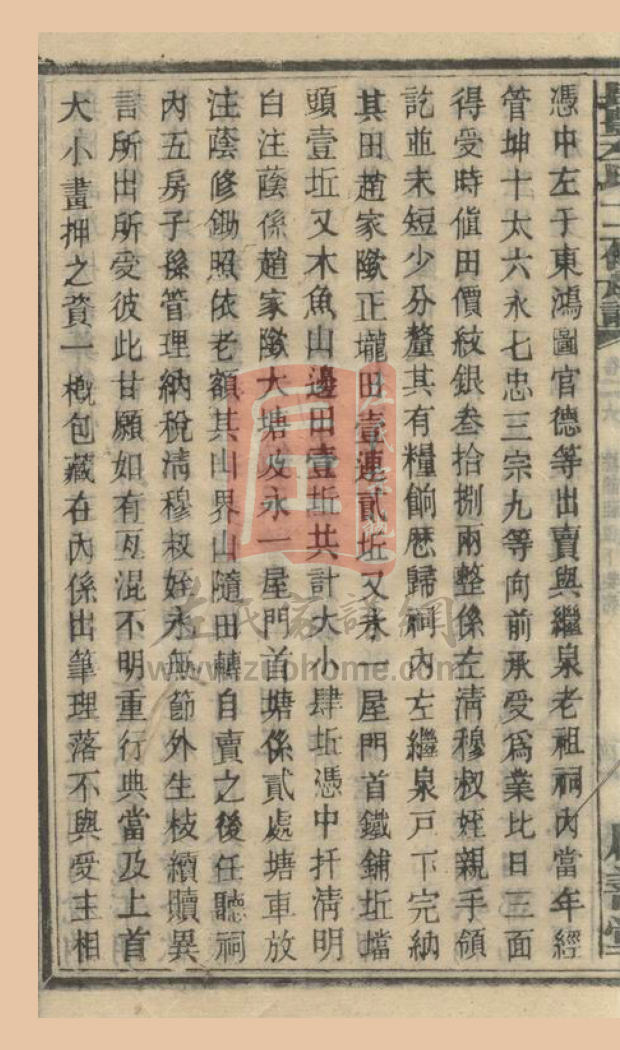 憑中左于東鴻圖官德等出賣與繼泉老祖祠內當年經
管坤十太六永七忠三宗九等向前承受爲業比日三面
得受時值田價紋銀叁拾捌兩整係左淸穆叔姪親手領
訖並未短少分釐其有糧餉懸歸祠內左繼泉戸下完納
其田趙家𡑞正壠田壹連貳坵又永一屋門首鐵鋪坵壋
頭壹坵又木魚山邊田壹坵共計大小肆坵憑中扞淸明
白注蔭係趙家𡑞大塘及永一屋門首塘係貳處塘車放
注蔭修鋤照依老額其山界山隨田轉自賣之後任聽祠
內五房子孫管理納稅淸穆叔姪永無節外生枝續贖異
言所出所受彼此甘願如有互混不明重行典當及上首
大小畫押之資一槪包藏在內係出筆理落不與受主相
左氏家譜網
www.zuohome.com